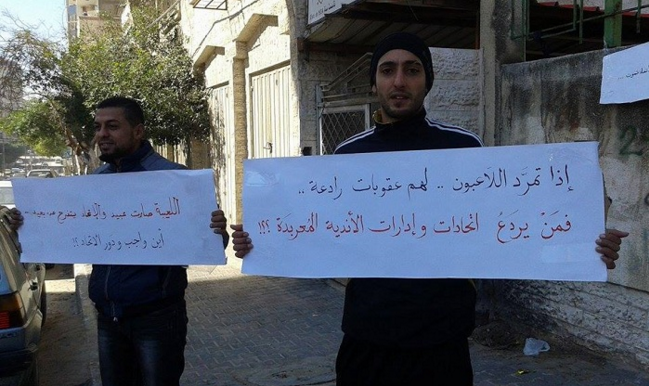 إذا تمرَّد اللاعبون .. لهم عقوبات رادعة ..
فمَنْ يردَعُ اتحادات وإدارات الأندية المُعربدَة ؟؟!
اللعيبة صارت عبيد والاتحاد بتفرج من بعيد
أين واجب ودور الاتحاد ؟!